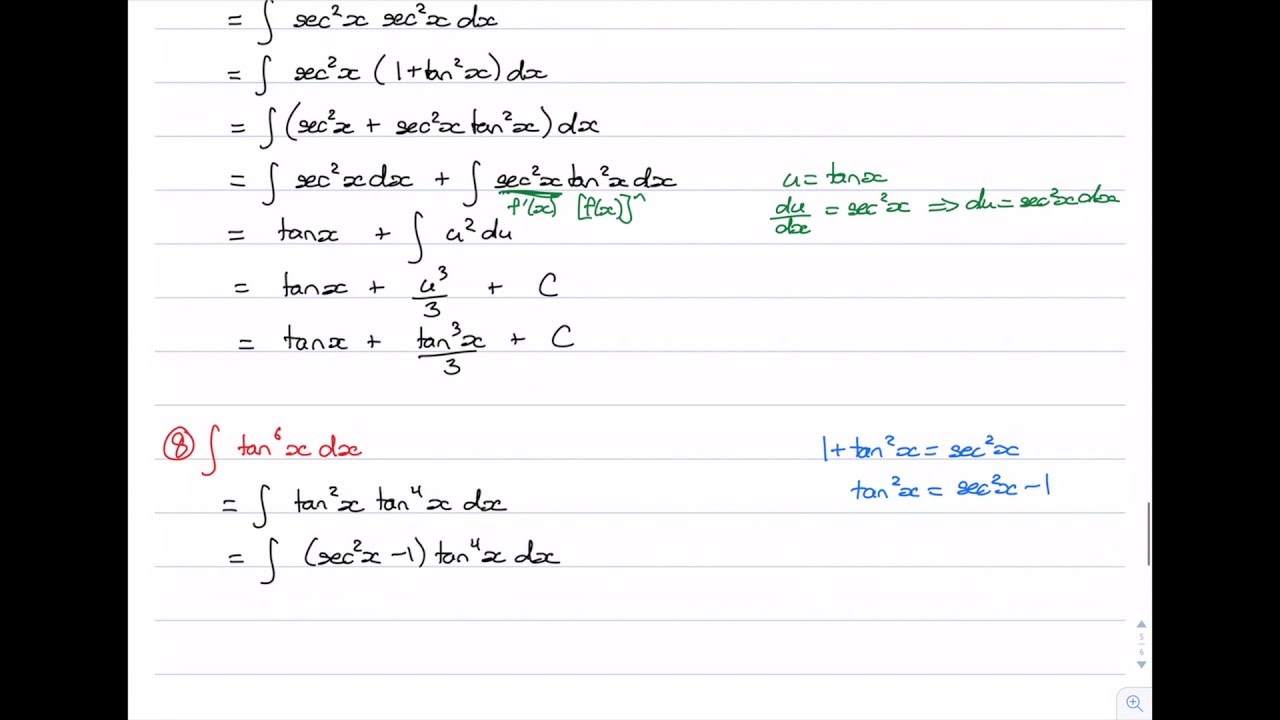 = ∫ sec²x sec²x dx
= ∫ sec²x (1+tan²x) dx
= ∫ (sec²x + sec²x tan²x) dx
= ∫ sec²x dx + ∫ sec²x tan²x dx
f'(x) [f(x)]ⁿ
u = tanx
du/dx = sec²x ⇒ du = sec²x dx
= tanx + ∫ u² du
= tanx + u³/3 + C
= tanx + tan³x/3 + C
⑧ ∫ tan⁶x dx
1+tan²x = sec²x
tan²x = sec²x −1
= ∫ tan²x tan⁴x dx
= ∫ (sec²x −1) tan⁴x dx
5
6